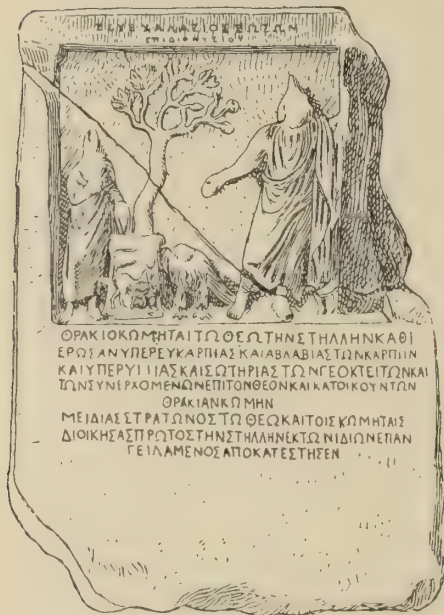 ΕΠΙΔΙΟΝΥΣΙΟΥ
ΘΡΑΚΙΟΚΩΜΗΤΑΙΤΩΘΕΩΤΗΝΣΤΗΛΛΗΝΚΑΘΙ
ΕΡΩΣΑΝΥΠΕΡΕΥΚΑΡΠΙΑΣΚΑΙΑΒΛΑΒΙΑΣΤΩΝΚΑΡΠΩΝ
ΚΑΙΥΠΕΡΥΓΙΙΑΣΚΑΙΣΩΤΗΡΙΑΣΤΩΝΓΕΟΚΤΕΙΤΩΝΚΑΙ
ΤΩΝΣΥΝΕΡΧΟΜΕΝΩΝΕΠΙΤΟΝΘΕΟΝΚΑΙΚΑΤΟΙΚΟΥΝΤΩΝ
ΘΡΑΚΙΑΝΚΩΜΗΝ
ΜΕΙΔΙΑΣΣΤΡΑΤΩΝΟΣΤΩΘΕΩΚΑΙΤΟΙΣΚΩΜΗΤΑΙΣ
ΔΙΟΙΚΗΣΑΣΠΡΩΤΟΣΤΗΝΣΤΗΛΛΗΝΕΚΤΩΝΙΔΙΩΝΕΠΑΝ
ΓΕΙΛΑΜΕΝΟΣΑΠΟΚΑΤΕΣΤΗΣΕΝ